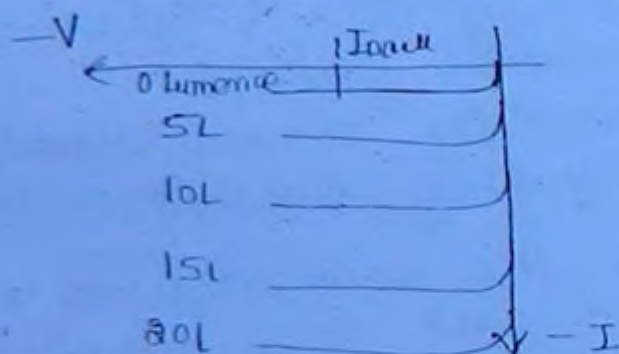 —V
0 Lumence
5L
10L
15L
20L
— I